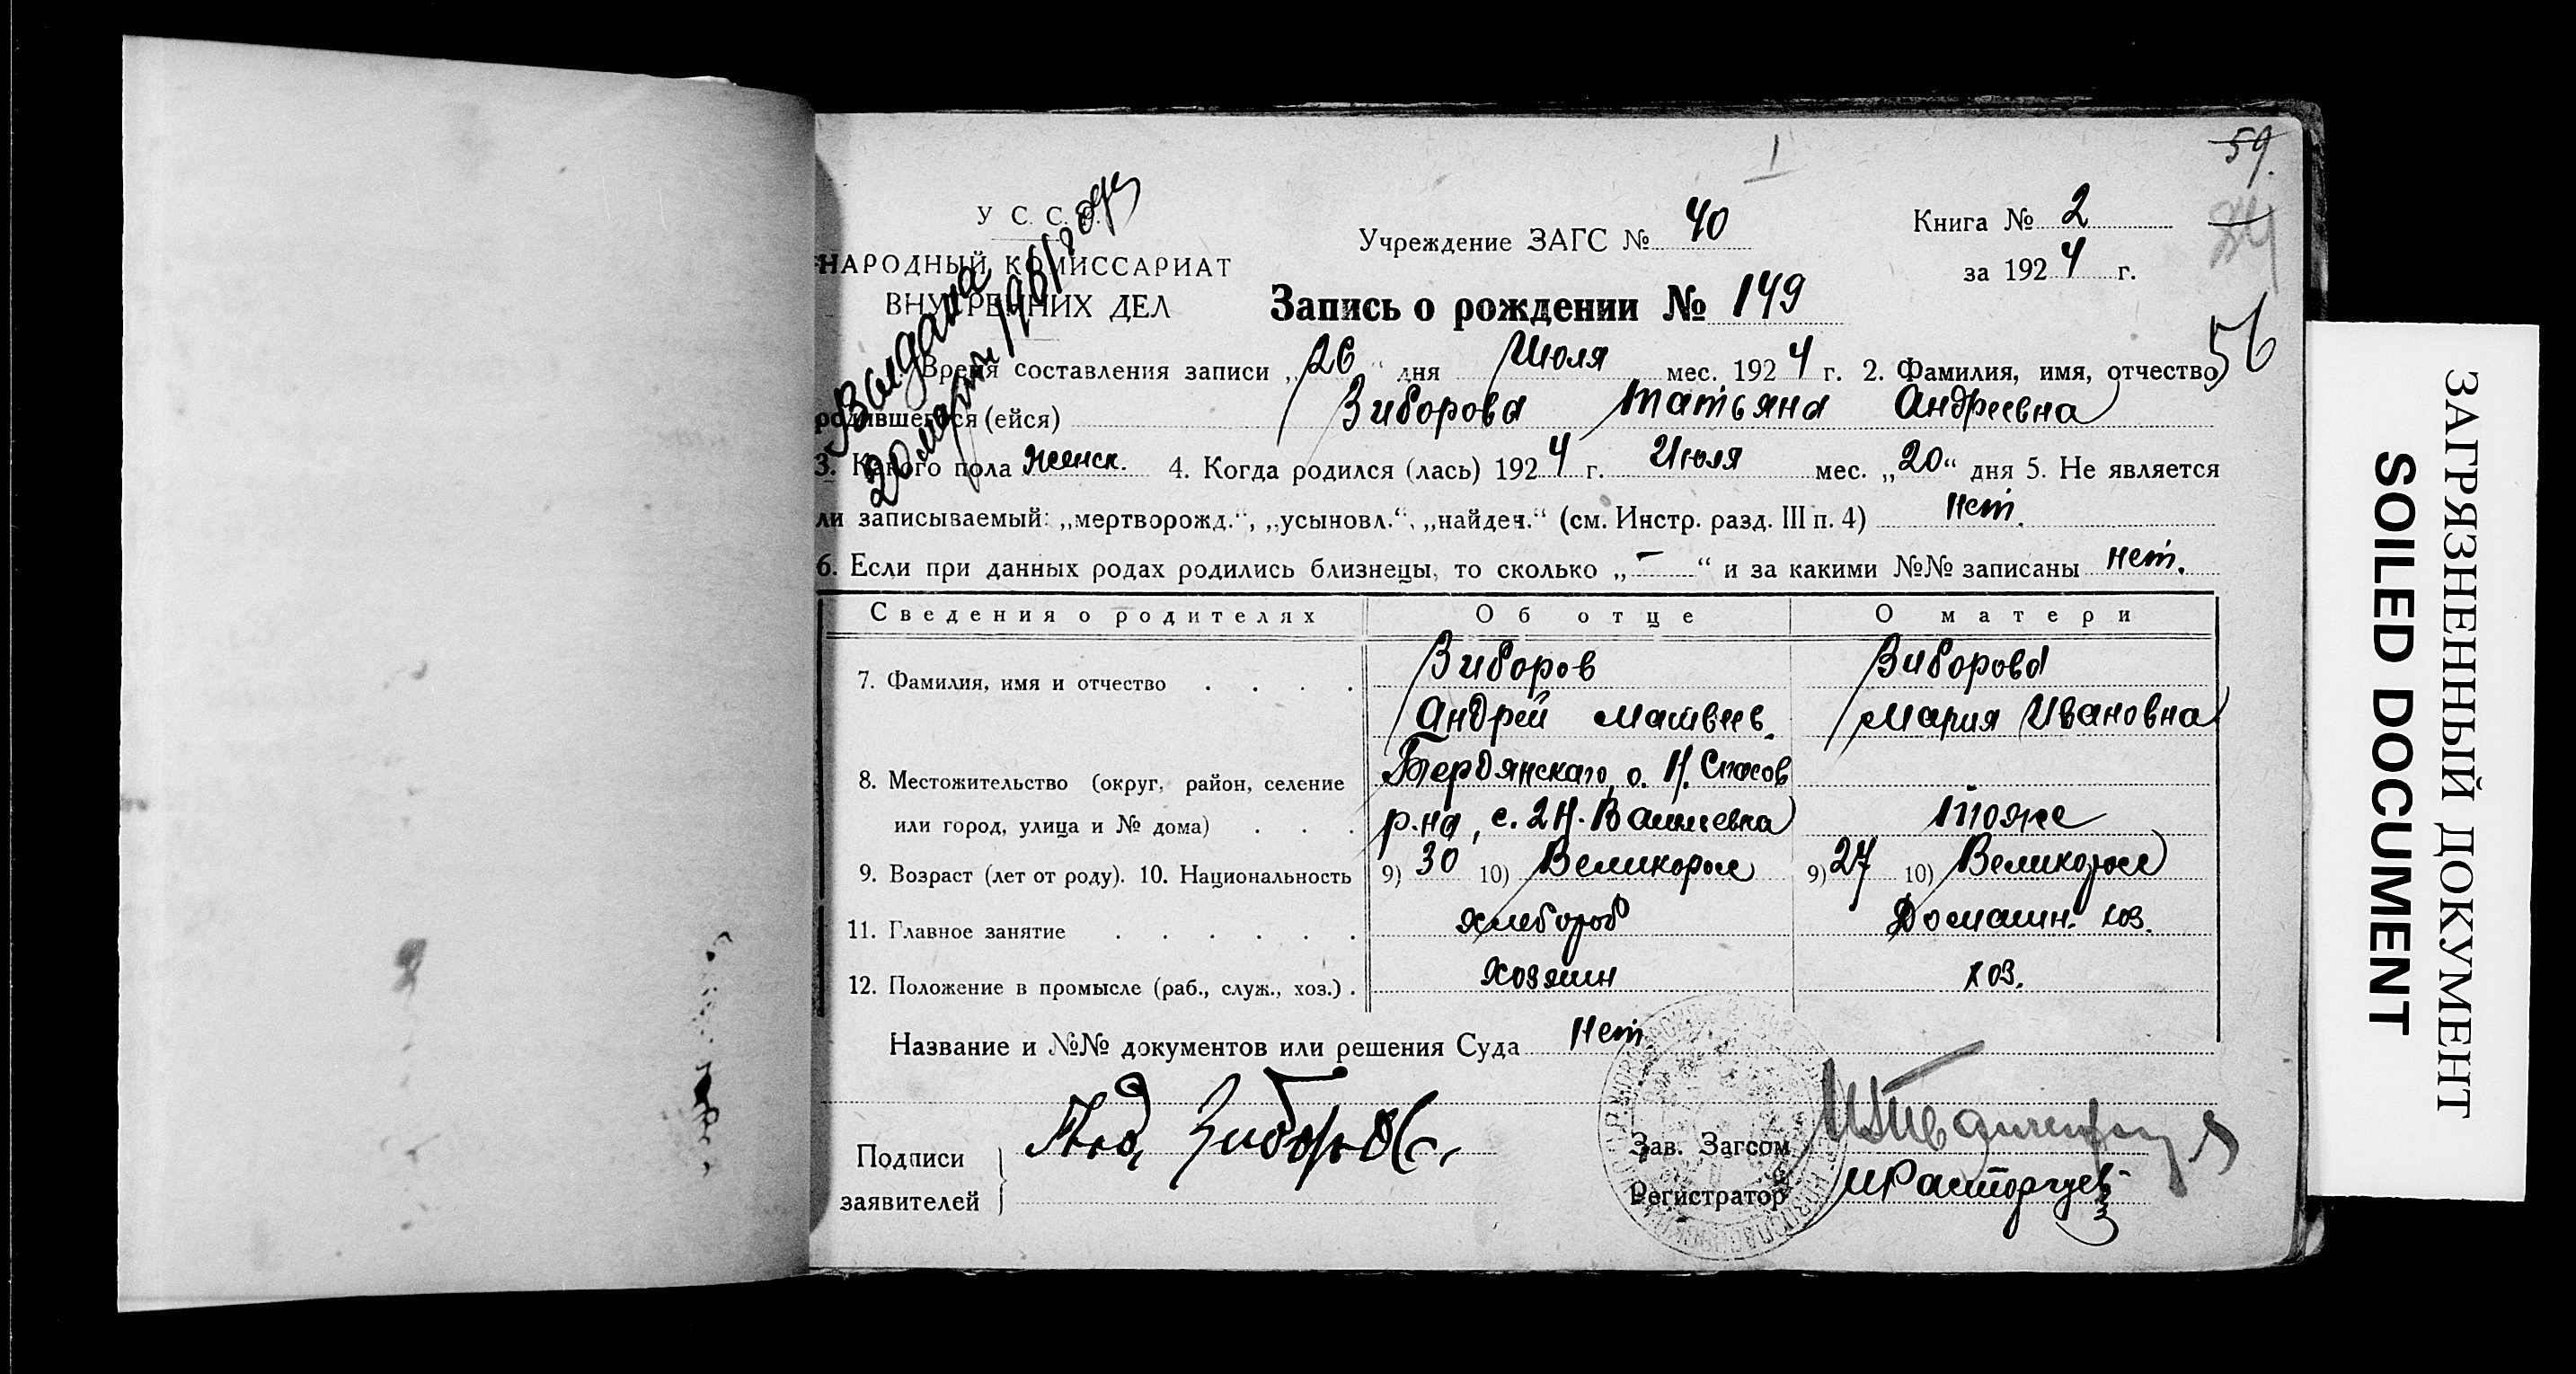 59.
84
56
I
У С. С. Р.
НАРОДНЫЙ КОМИССАРИАТ
ВНУТРЕННИХ ДЕЛ
Выдана
20 марта 1961 году
Учреждение ЗАГС № 40
Книга № 2
за 1924 г.
Запись о рождении № 149
Время составления записи „26“ дня Июля мес. 1924 г. 2. Фамилия, имя, отчество
родившегося (ейся) Зиборова Татьяна Андреевна
3. Какого пола женск. 4. Когда родился (лась) 1924 г. Июля мес. „20“ дня 5. Не является
ли записываемый: „мертворожд.“, „усыновл.“, „найден.“ (см. Инстр. разд. III п. 4) Нет.
6. Если при данных родах родились близнецы, то сколько „—“ и за какими №№ записаны нет.
Сведения о родителях Об отце О матери
7. Фамилия, имя и отчество . . . . Зиборов Зиборова
Андрей Матвеев. Мария Ивановна
8. Местожительство (округ, район, селение Бердянскаго о. Н. Спасов
или город, улица и № дома) . . . р-на, с. 2 Н. Васильевка Тоже
9. Возраст (лет от роду). 10. Национальность 9) 30 10) Великорос 9) 27 10) Великорос
11. Главное занятие . . . . . . хлебороб Домашн. хоз.
12. Положение в промысле (раб., служ., хоз.) . хозяин хоз.
Название и №№ документов или решения Суда Нет
Подписи
заявителей
Зиборов
Зав. Загсом
Регистратор И Расторгуев
ЗАГРЯЗНЕННЫЙ ДОКУМЕНТ
SOILED DOCUMENT